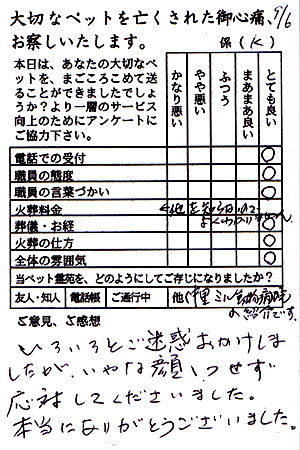 大切なペットを亡くされた御心痛、9/6
お察しいたします。
係(K)
本日は、あなたの大切なペットを、まごころこめて送ることができましたでしょうか?より一層のサービス向上のためにアンケートにご協力下さい。
かなり悪い
やや悪い
ふつう
まあまあ良い
とても良い
電話での受付 ○
職員の態度 ○
職員の言葉づかい ○
火葬料金 他を知らないので
よくわかりません
葬儀・お経 ○
火葬の仕方 ○
全体の雰囲気 ○
当ペット霊苑を、どのようにしてご存じになりましたか?
友人・知人 電話帳 ご通行中 他(
動物病院
の紹介です。
ご意見、ご感想
いろいろとご迷惑おかけしま
したが、いやな顔1つせず
応対してくださいました。
本当にありがとうございました。